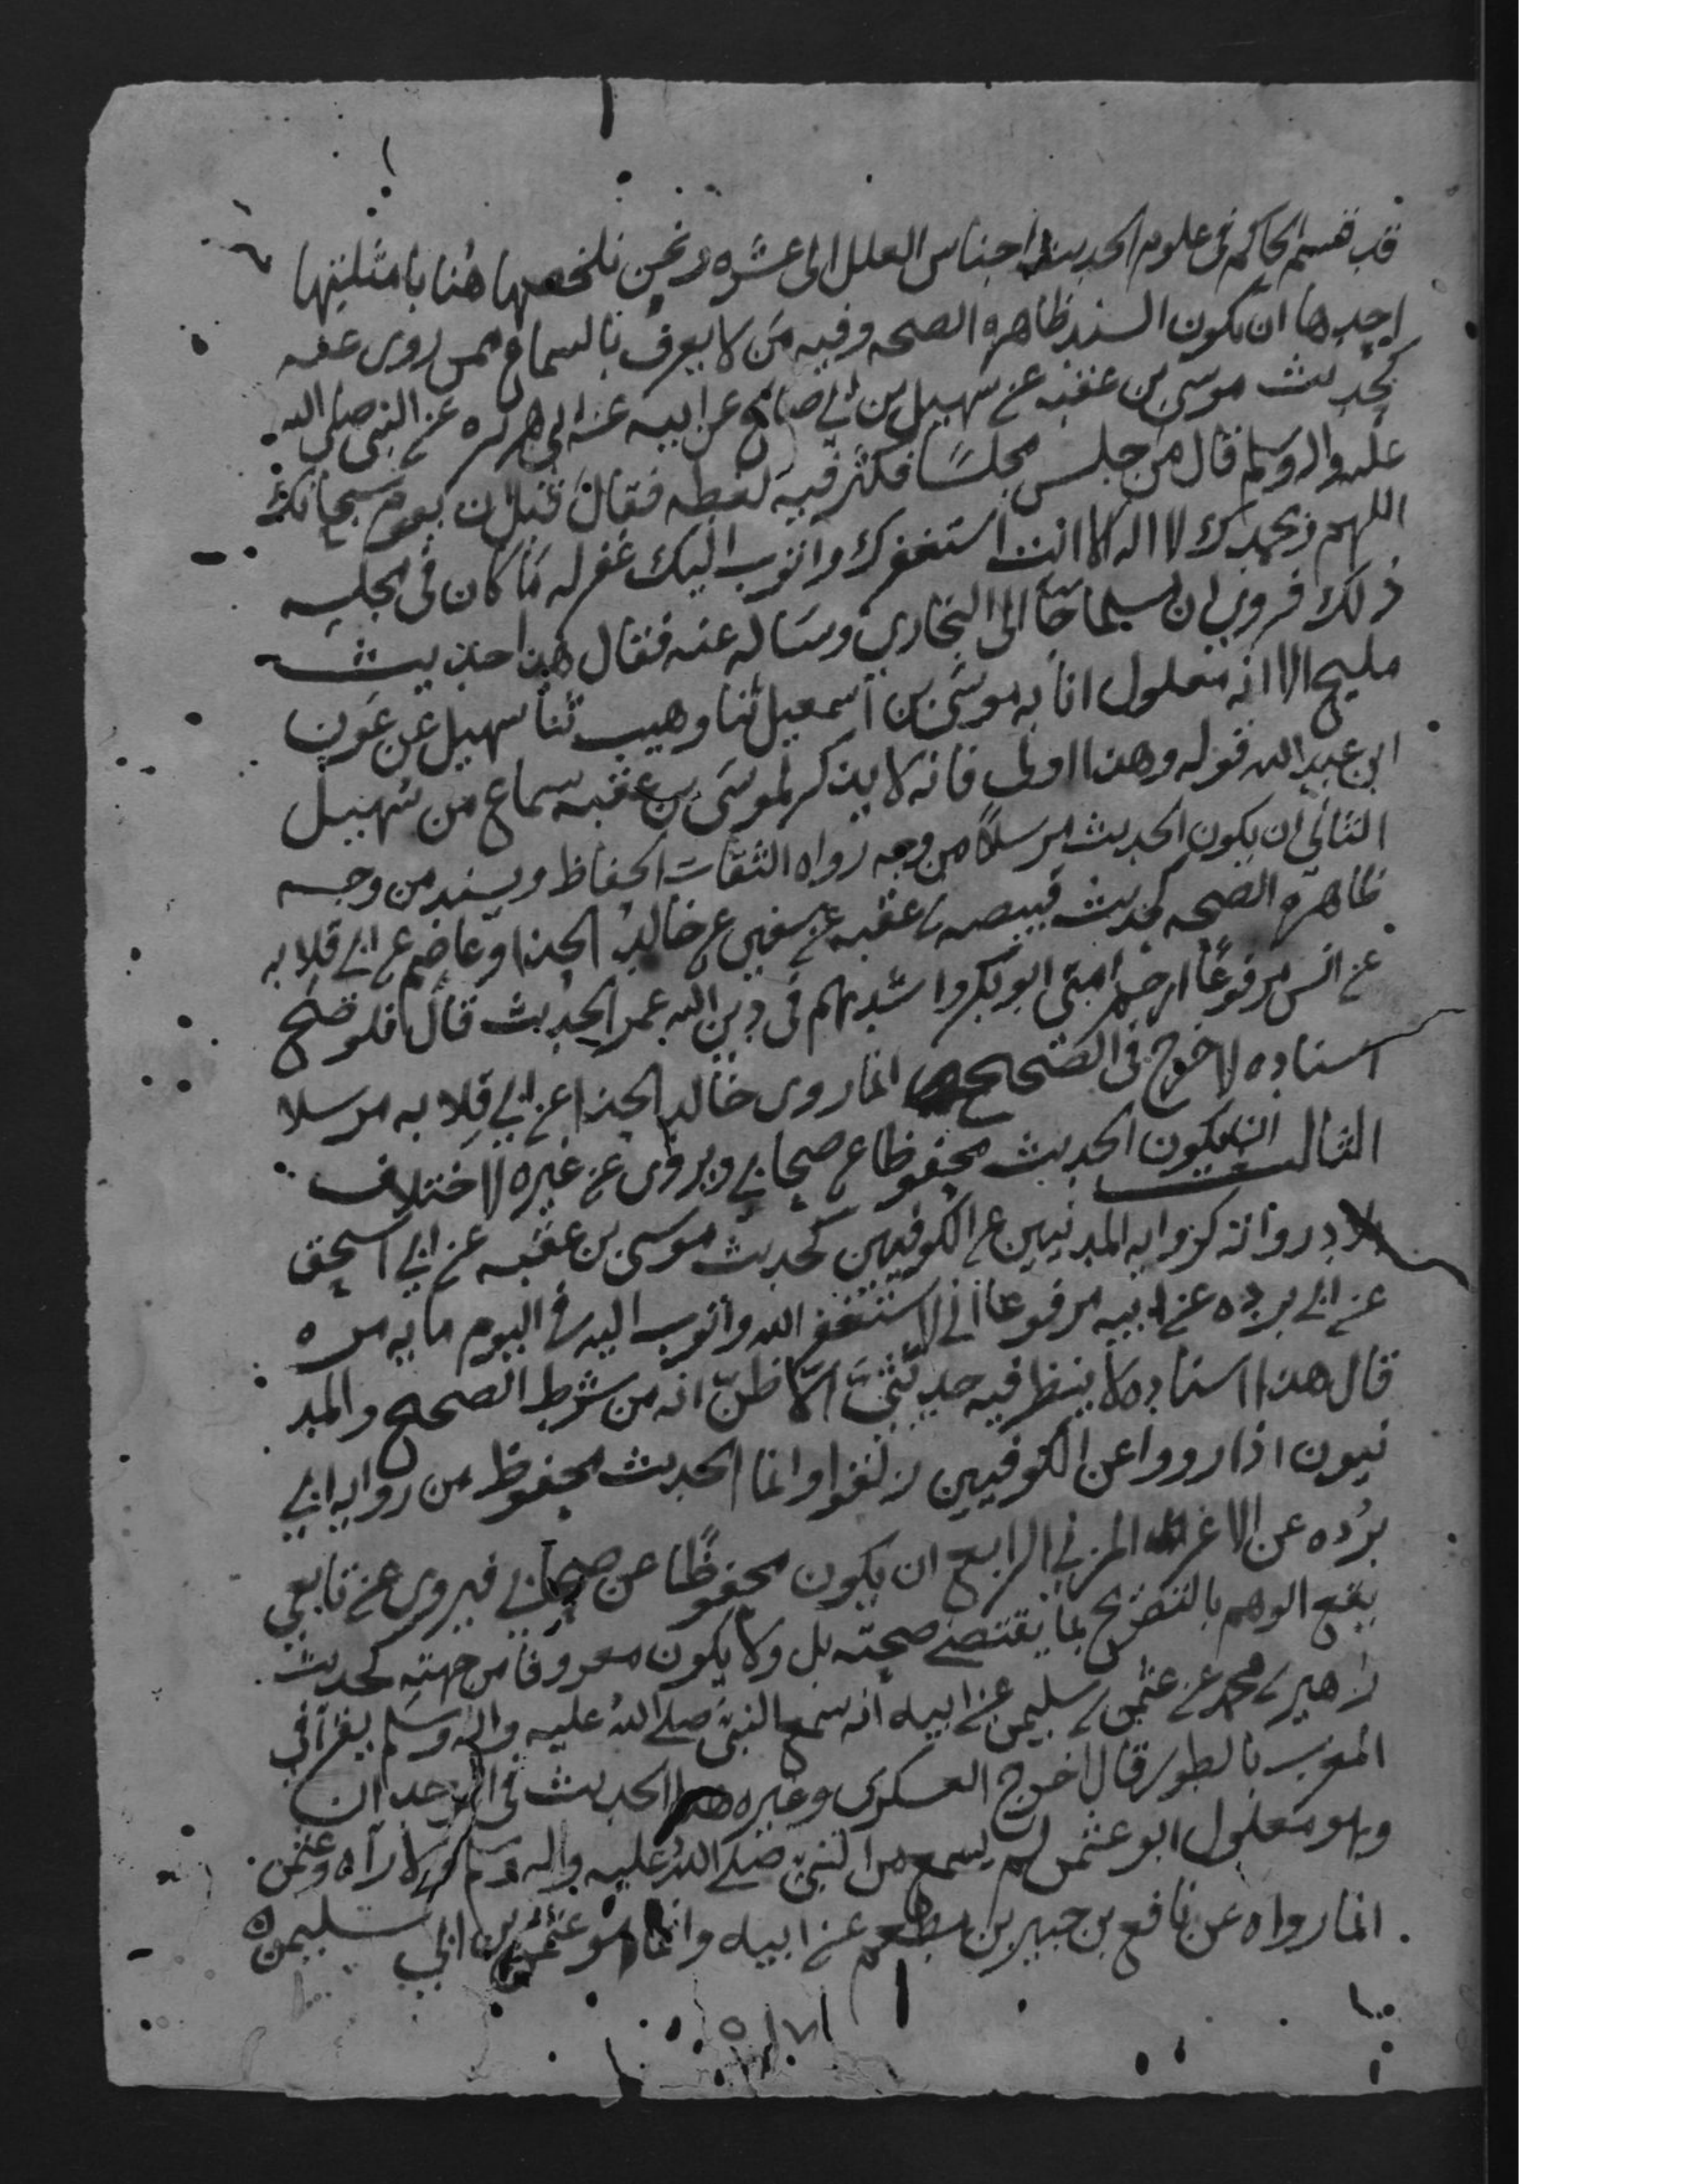 قد قسم الحاكم في علوم الحديث اجناس العلل الى عشره ونحن نلخصها هنا بامثلتها
احدها ان يكون السند ظاهره الصحه وفيه من لا يعرف بالسماع ممن روى عنه
كحديث موسى بن عقبه عن سهيل بن ابي صالح عن ابيه عن ابي هريره عن النبي صلى الله
عليه واله وسلم قال من جلس مجلسا فكثر فيه لغطه فقال قبل ان يقوم سبحانك
اللهم وبحمدك لا اله الا انت استغفرك واتوب اليك غفر له ما كان في مجلسه
ذلك فروي ان مسلما جا الى البخاري وساله عنه فقال هذا حديث
مليح الا انه معلول انا به موسى بن اسمعيل ثنا وهيب ثنا سهيل عن عون
ابن عبد الله قوله وهذا اولى فانه لا يذكر لموسى بن عقبه سماع من سهيل
الثاني ان يكون الحديث مرسلا من وجه رواه الثقات الحفاظ ويسند من وجه
ظاهره الصحه كحديث قبيصه بن عقبه عن سفين عن خالد الحذا وعاصم عن ابي قلابه
عن انس مرفوعا ارحم امتي ابو بكر واشدهم في دين الله عمر الحديث قال فلو صح
اسناده لاخرج في الصحيح انما روى خالد الحذا عن ابي قلابه مرسلا
الثالث ان يكون الحديث محفوظا عن صحابي ويروى عن غيره لاختلاف
بلاد رواته كرواية المدنيين عن الكوفيين كحديث موسى بن عقبه عن ابي اسحق
عن ابي برده عن ابيه مرفوعا اني لاستغفر الله واتوب اليه في اليوم مايه مره
قال هذا اسناده لا ينظر فيه حديثي الا ظن انه من شرط الصحيح والمد
نيون اذا رووا عن الكوفيين زلقوا وانما الحديث محفوظ من روايه ابي
برده عن الاغر المزني الرابع ان يكون محفوظا عن صحابي فيروى عن تابعي
يقع الوهم بالتصريح بما يقتضي صحته بل ولا يكون معروفا من جهته كحديث
زهير بن محمد عن عثمن بن سليمن عن ابيه انه سمع النبي صلى الله عليه واله وسلم يقرا في
المغرب بالطور قال اخرج العسكري وغيره هذا الحديث في الوحدان
وهو معلول ابو عثمن لم يسمع من النبي صلى الله عليه واله وسلم ولا رآه وعثمن
انما رواه عن نافع بن جبير بن مطعم عن ابيه وانما هو عثمن بن ابي سليمن